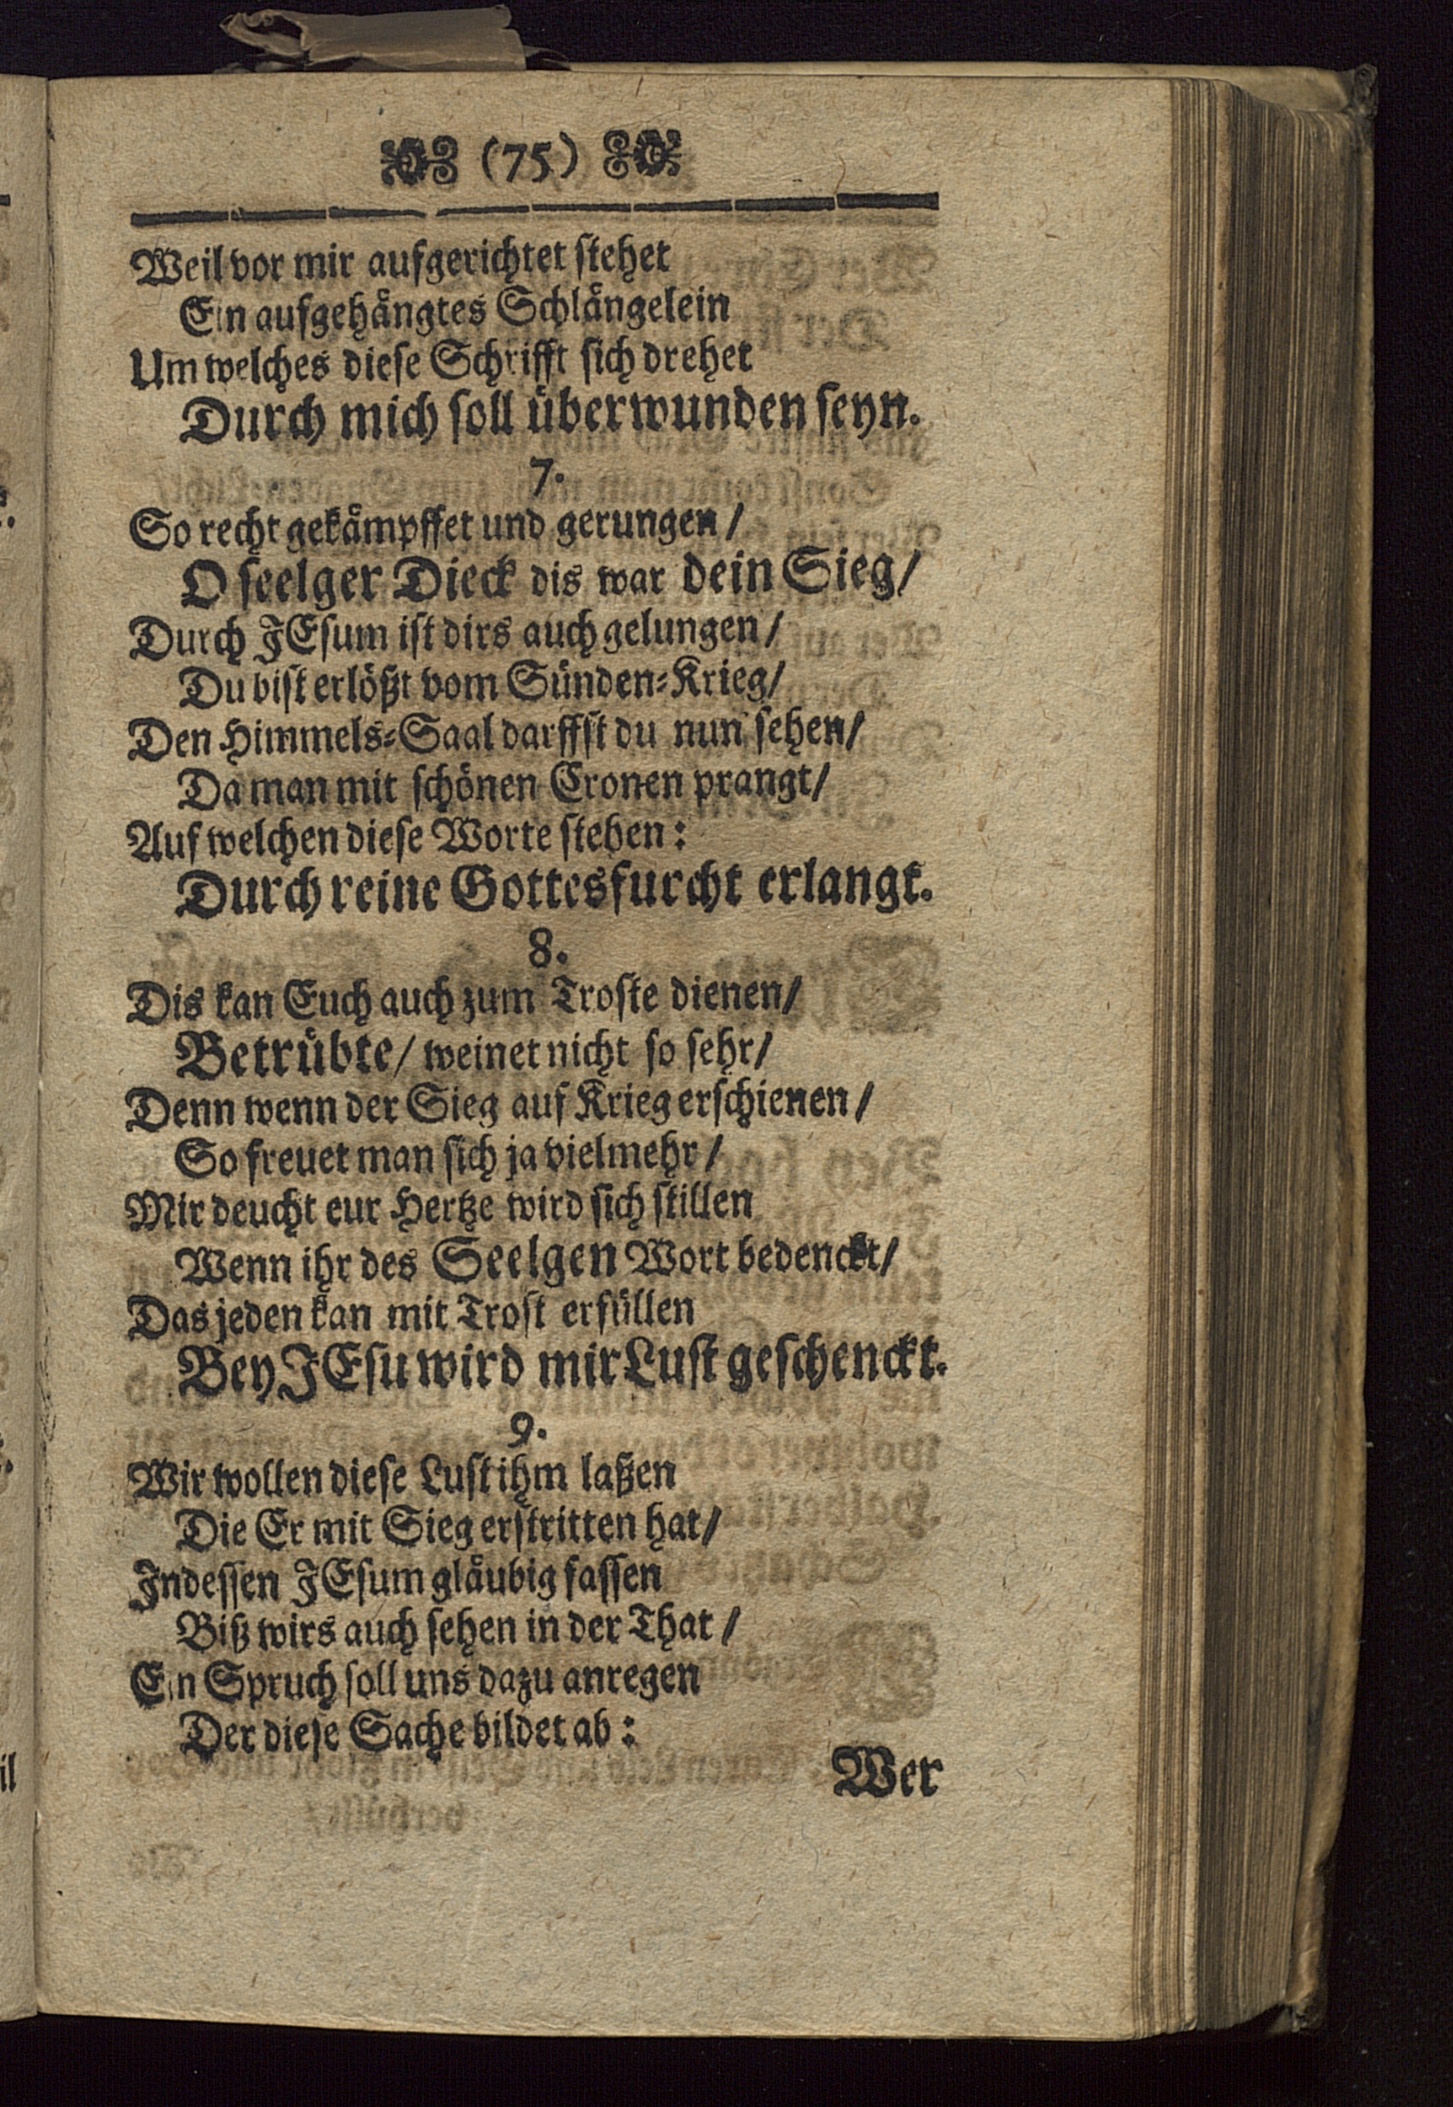 (75)
Weil vor mir aufgerichtet stehet
Ein aufgehängtes Schlängelein
Um welches diese Schrifft sich drehet
Durch mich soll überwunden seyn.
7.
So recht gekämpffet und gerungen/
O seelger Dieck dis war dein Sieg/
Durch JEsum ist dirs auch gelungen/
Du bist erlößt vom Sünden-Krieg/
Den Himmels-Saal darffst du nun sehen/
Da man mit schönen Cronen prangt/
Auf welchen diese Worte stehen:
Durch reine Gottesfurcht erlangt.
8.
Dis kan Euch auch zum Troste dienen/
Betrübte/ weinet nicht so sehr/
Denn wenn der Sieg auf Krieg erschienen/
So freuet man sich ja vielmehr/
Mir deucht eur Hertze wird sich stillen
Wenn ihr des Seelgen Wort bedenckt/
Das jeden kan mit Trost erfüllen
Bey JEsu wird mir Lust geschenckt.
9.
Wir wollen diese Lust ihm laßen
Die Er mit Sieg erstritten hat/
Indessen JEsum gläubig fassen
Biß wirs auch sehen in der That/
Ein Spruch soll uns dazu anregen
Der diese Sache bildet ab:
Wer